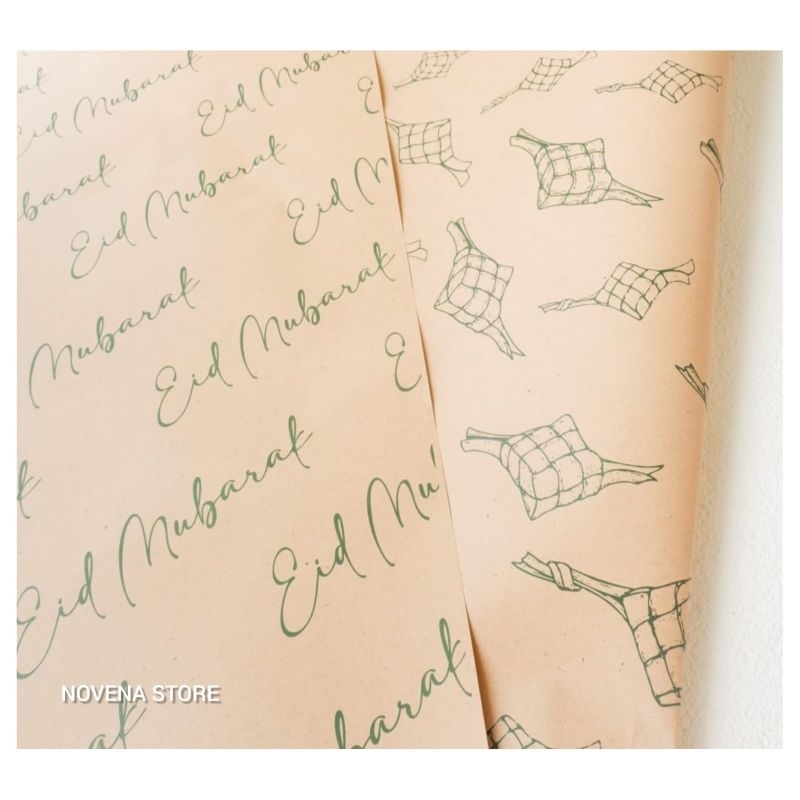 Eid Mubarak
Eid Mubarak
Mubarak
Eid Mubarak
Eid
Mubarak
Eid Mubarak
E
Eid Mubarak
Eid
NOVENA STORE